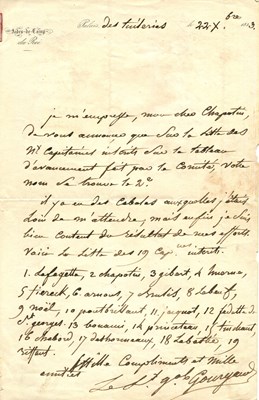 Aide-de-Camp
du Roi
Palais des tuileries le 22 Xbre
je m'empresse, mon cher Chapotin,
de vous annoncer que sur la liste des
Capitaines inscrits sur le tableau
d'avancement fait par le Comité, votre
nom se trouve le 2e.
il y a eu des Cabales auxquelles j'étais
loin de m'attendre, mais enfin je suis
bien content du résultat de mes efforts.
Voici la liste des 19 Capnes
1. Lafayette, 2 chapotin, 3 gibert, 4
6 arnous, 8
9 noël, 10 pontbrillant, 11 jacquot, 12
St georges. 13 14 princeteau, 15
16 Chabord, 17 18 Labathe, 19
Mille Compliments et Mille
amitiés
Le Gourgaud